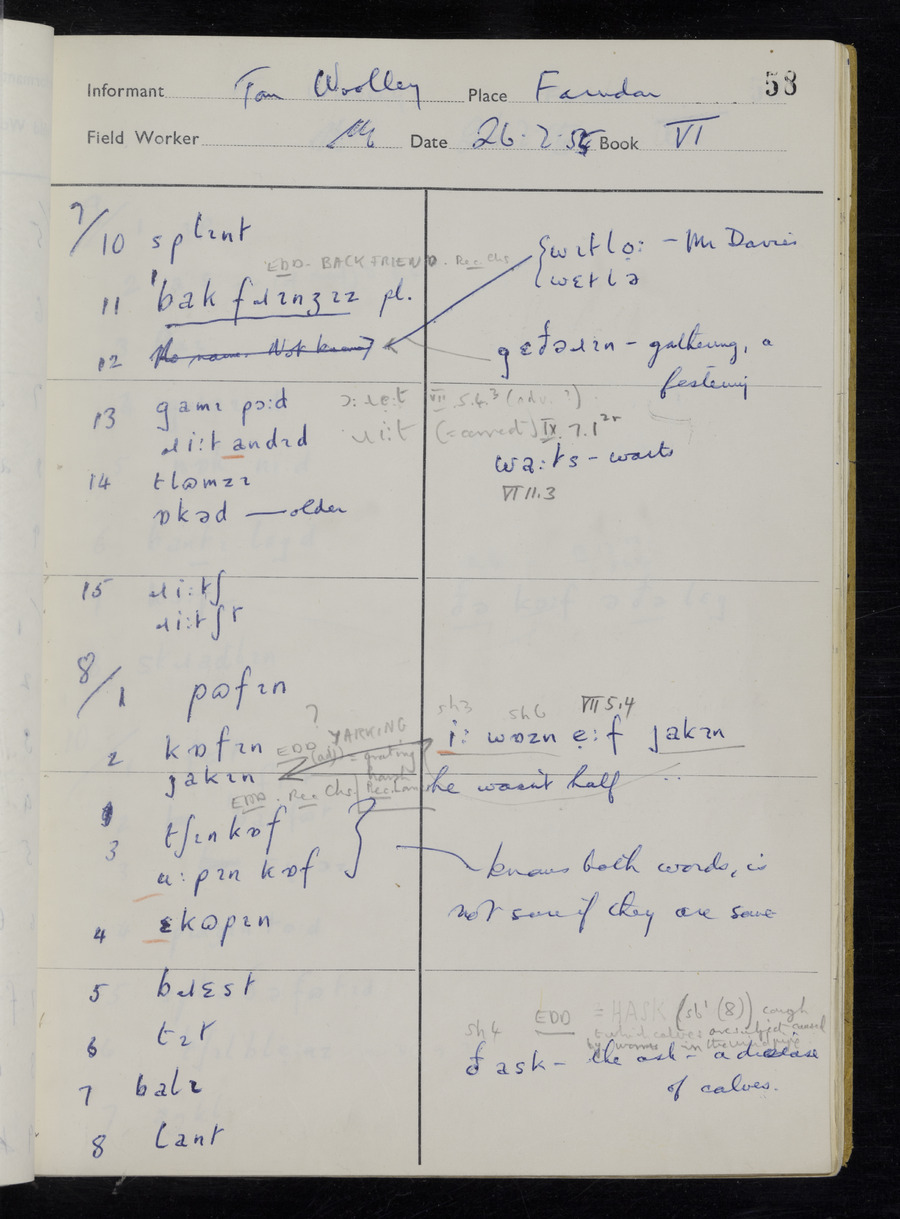 Informant Tom Woolley Place Farndon 53
Field Worker Date 26.2.55 Book VI
7/10 splɪnt
EDD - BACKFRIEND. Rec Chs
{wɪtlɔ: - Mr Davies
{wɛtlə
11 'bak fɹɪnʒɪz pl.
12 No name. Not known
gɛðəɹɪn - gathering, a
festering
13 gamɪ pɔ:d
ɹi:t andɪd
ɔ:ɹe:t VII 5.4³ (adv.?)
ɹi:t (=correct) IX. 7.1
wa:ts - warts
VI 11.3
14 tlɷmzɪ
ɒkəd — older
15 ɹi:tʃ
ɹi:tʃt
8/1 pɷfɪn
2 kɒfɪn
jakɪn
? EDD YARKING
(adj) = grating
harsh
EDD. Rec Chs
sh3 sh6 VII 5.4
i: wɒzn e:f jakɪn
he wasn't half ..
3 tʃɪnkɒf
a:pɪn kɒf
knows both words, is
not sure if they are same
4 ɛkɷpɪn
5 bɹɛst
6 tɪt
7 balɪ
8 lant
sh4 EDD = HASK (sb¹ (8)) cough
to which calves are subject caused
by worms in the windpipe
ðask - the ask - a disease
of calves.